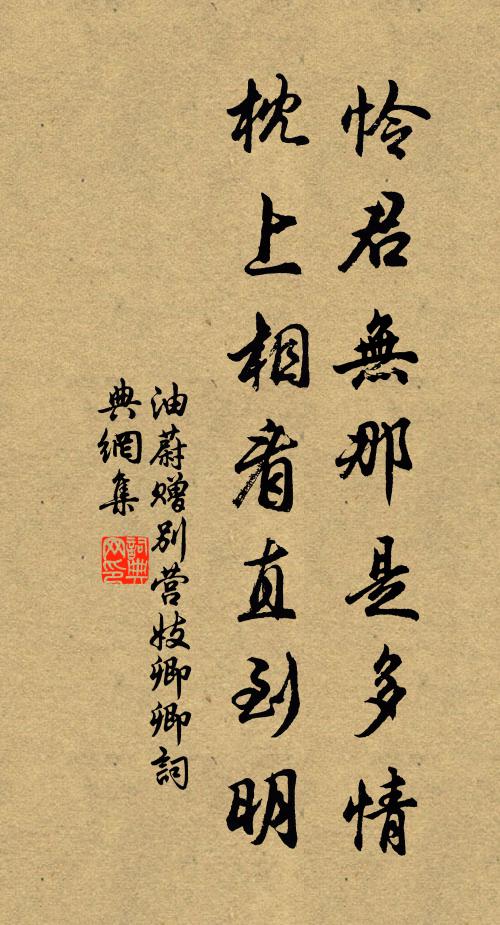 怜君無那是多情
枕上相看直到明
油蔚赠别营妓卿卿詞
典網集
詞典
网印